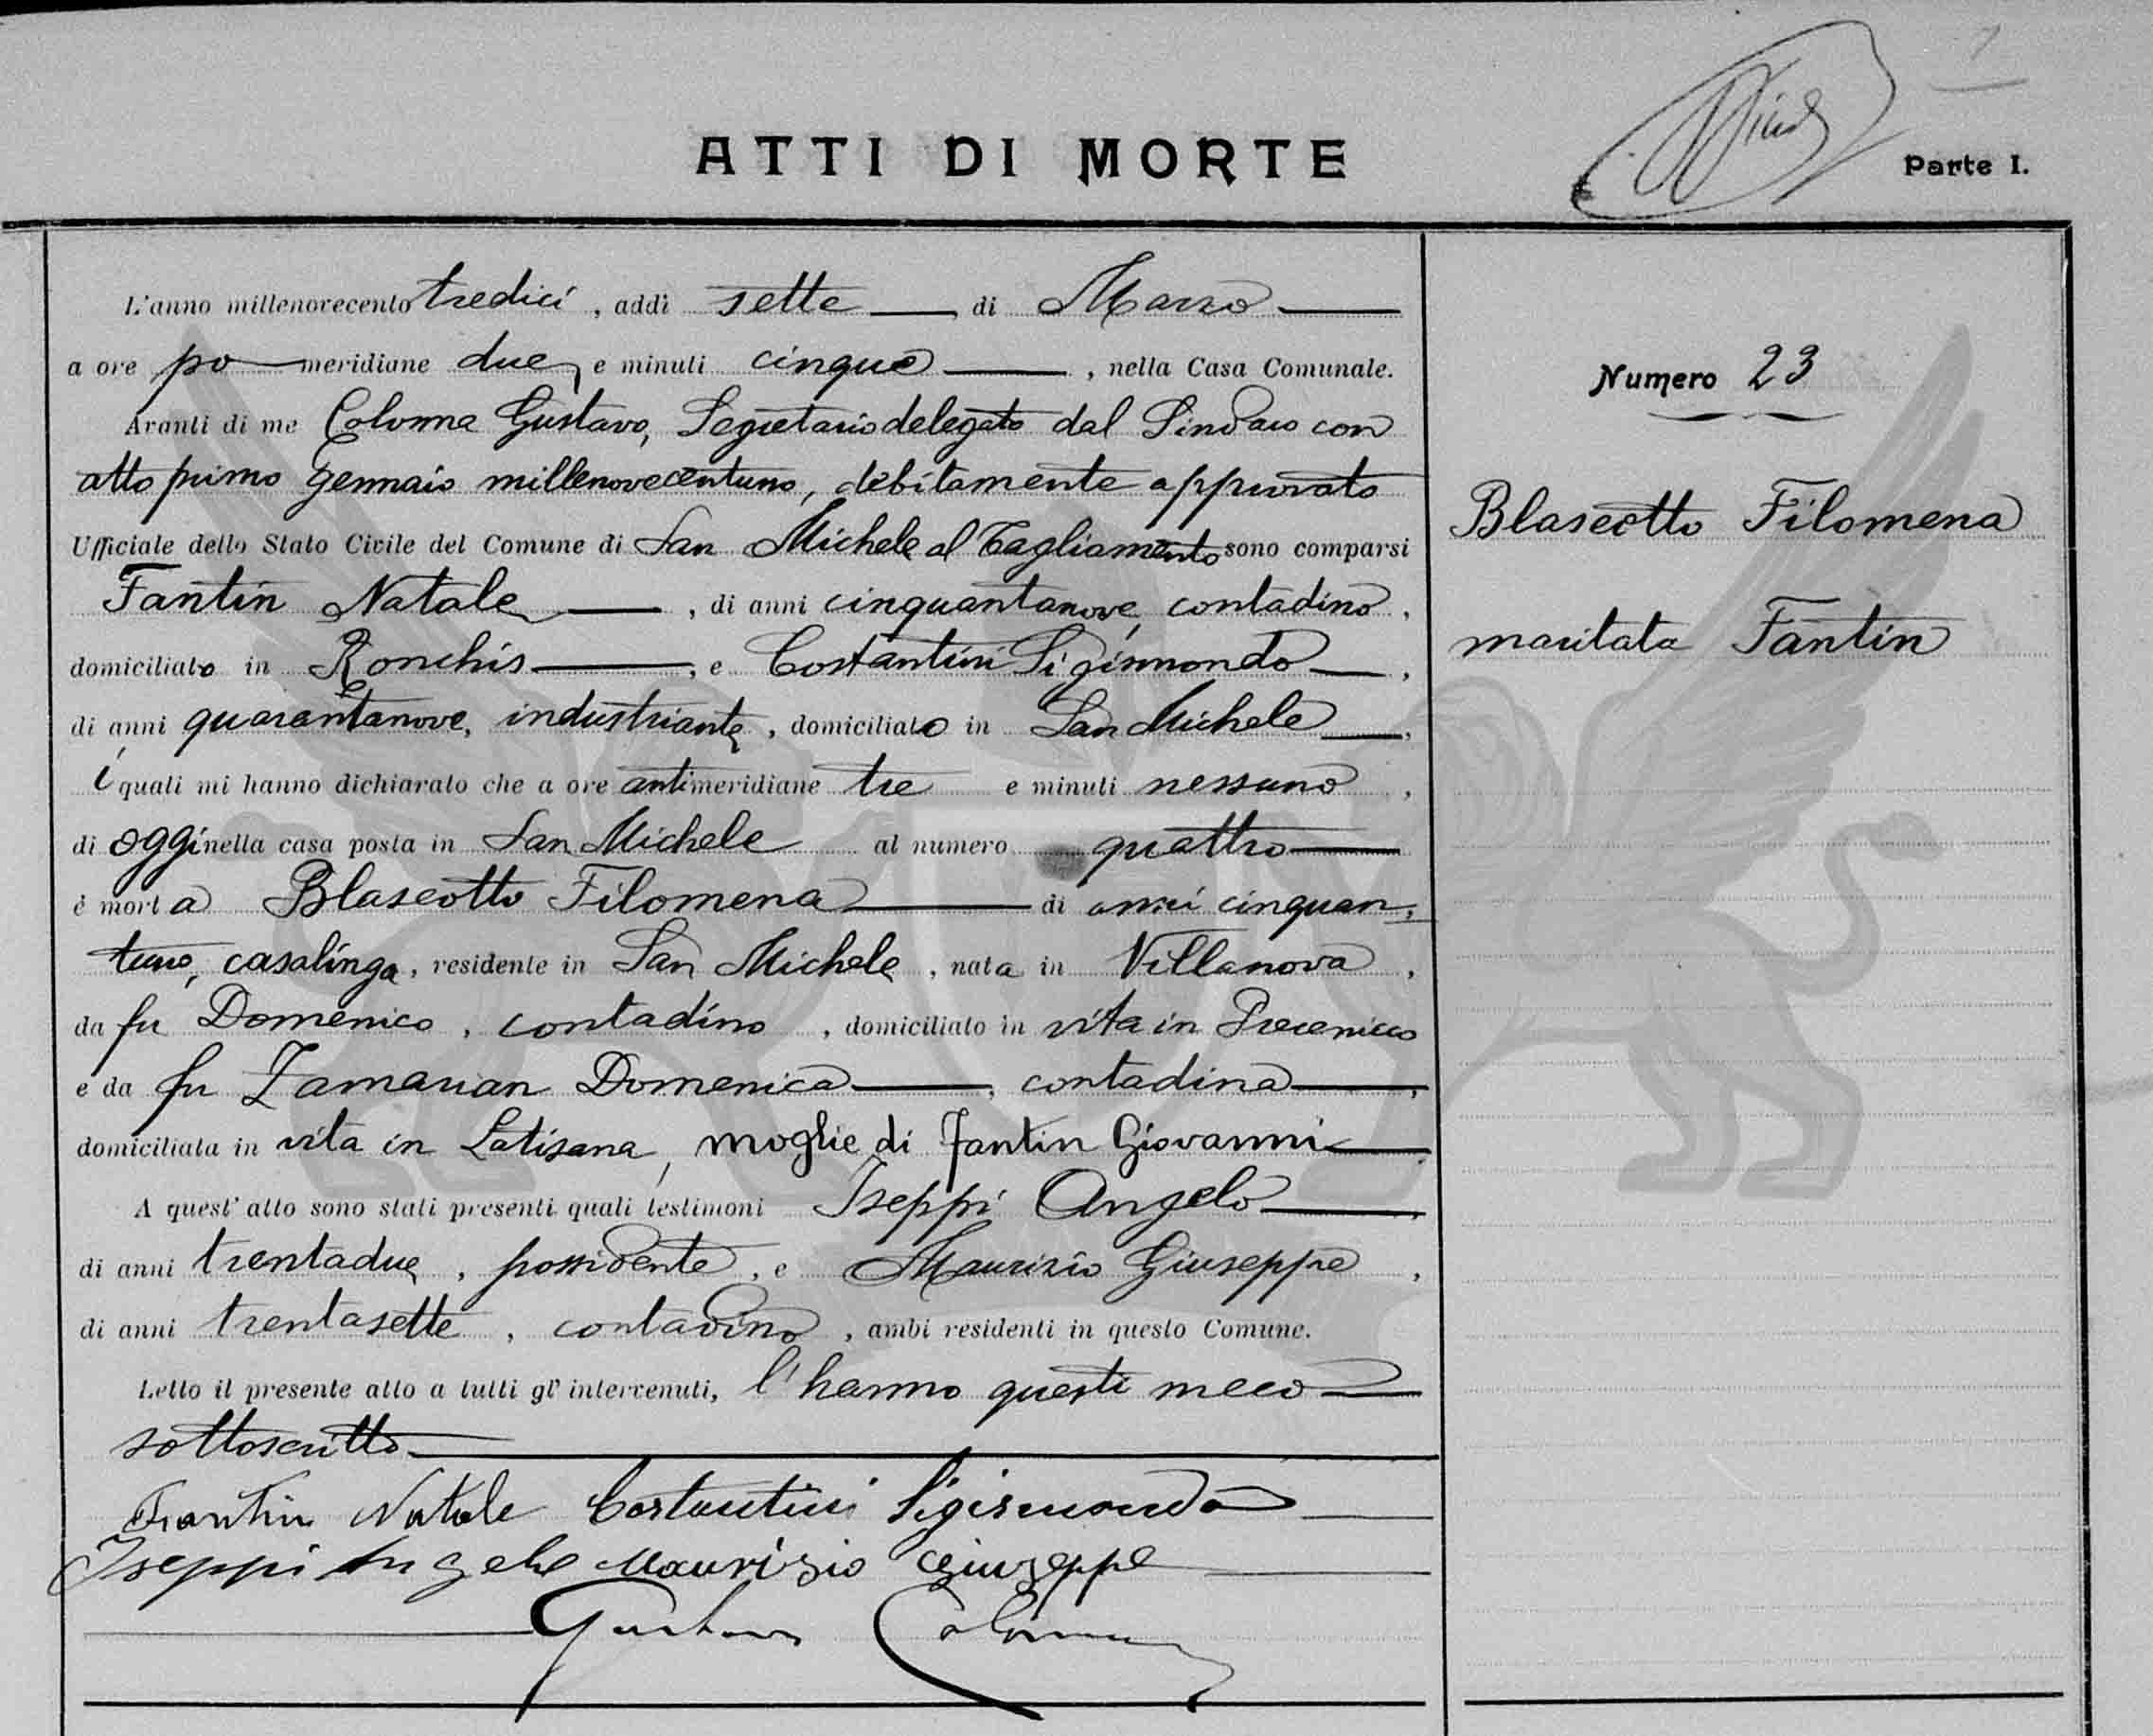 ATTI DI MORTE
Parte I.
L'anno millenovecento tredici, addì sette di Marzo
a ore pomeridiane due, e minuti cinque, nella Casa Comunale.
Avanti di me Colonna Gustavo, Segretario delegato dal Sindaco con
atto primo Gennaio millenovecentuno, debitamente approvato
Ufficiale dello Stato Civile del Comune di San Michele al Tagliamento sono comparsi
Fantin Natale, di anni cinquantanove, contadino,
domiciliato in Ronchis, e Costantini Sigismondo,
di anni quarantanove, industriante, domiciliato in San Michele,
i quali mi hanno dichiarato che a ore antimeridiane tre e minuti nessuno,
di oggi nella casa posta in San Michele al numero quattro
è morta Blaseotto Filomena di anni cinquan=
tuno, casalinga, residente in San Michele, nata in Villanova,
da fu Domenico, contadino, domiciliato in vita in Precenicco
e da fu Zamarian Domenica, contadina,
domiciliata in vita in Latisana, moglie di Fantin Giovanni
A quest'atto sono stati presenti quali testimoni Iseppi Angelo,
di anni trentadue, possidente, e Maurizio Giuseppe,
di anni trentasette, contadino, ambi residenti in questo Comune.
Letto il presente atto a tutti gl'intervenuti, l'hanno questi meco
sottoscritto
Fantin Natale Costantini Sigismondo
Iseppi Angelo Maurizio Giuseppe
Gustavo Colonna
Numero 23
Blaseotto Filomena
maritata Fantin